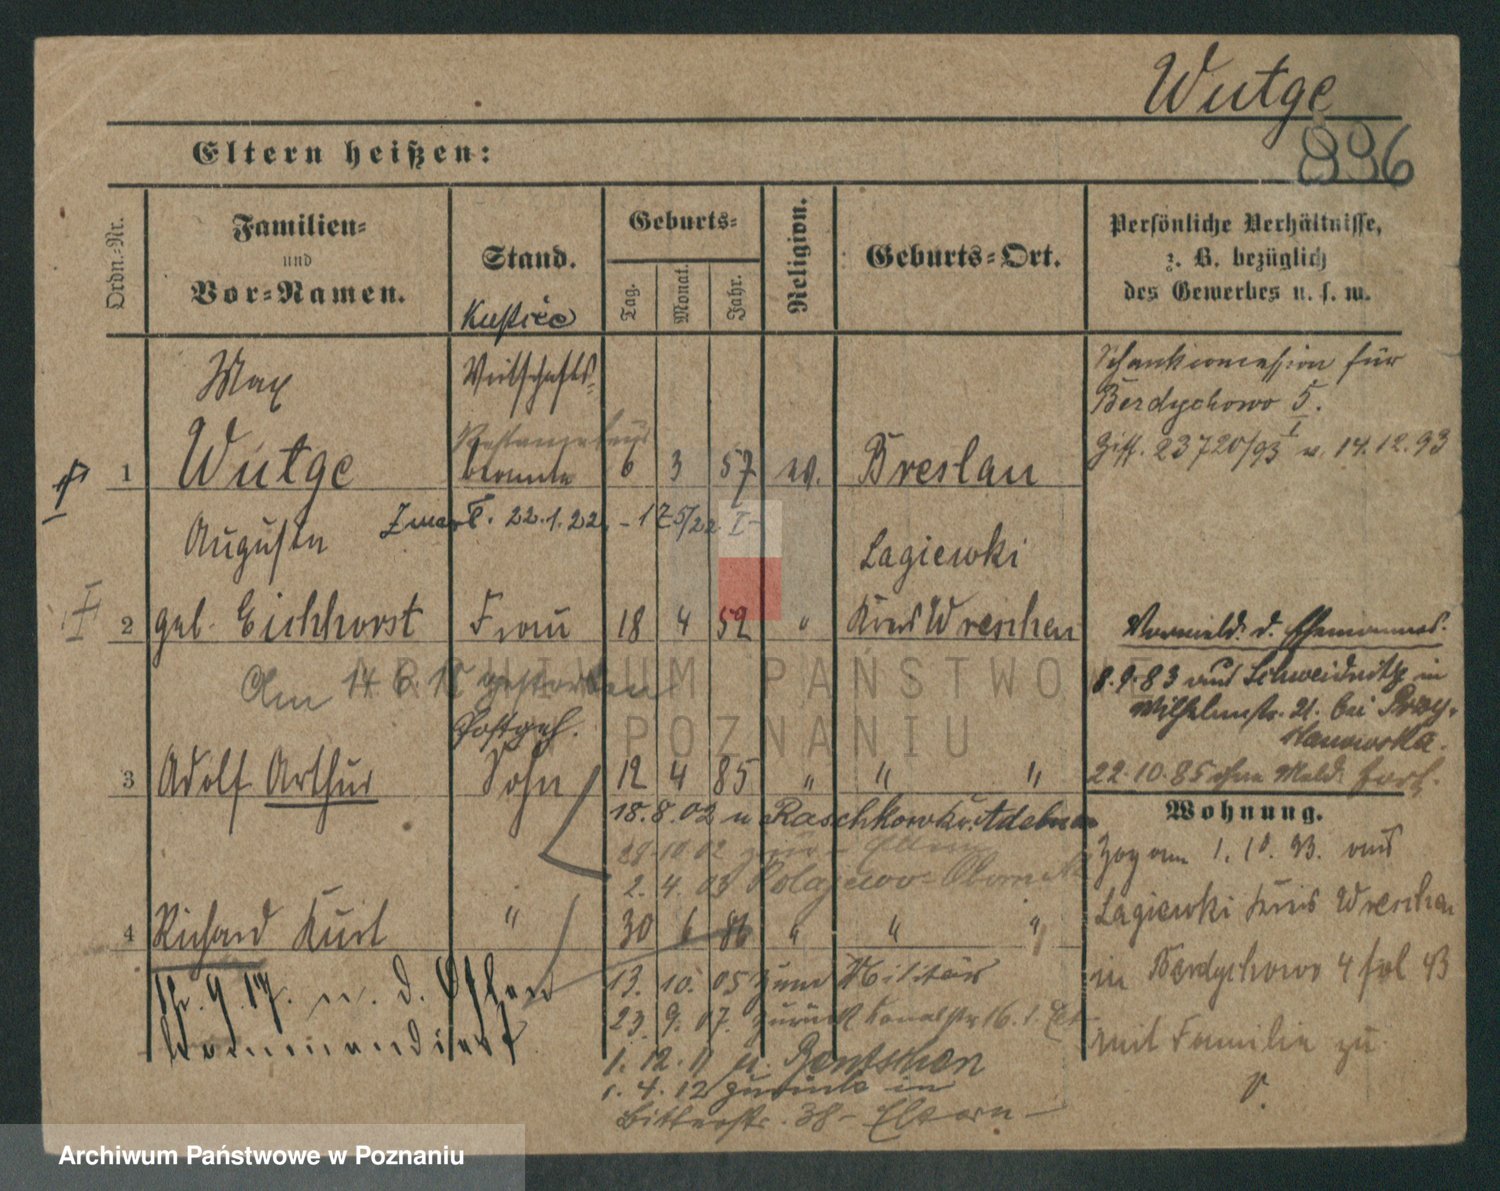 Wutge
896
Eltern heißen:
Ordn.-Nr.
Familien-
und
Vor-Namen.
Stand.
Geburts-
Tag.
Monat.
Jahr.
Religion.
Geburts-Ort.
Persönliche Verhältnisse,
z. B. bezüglich
des Gewerbes u. s. w.
Max
Wirtschafts-
1 Wutge beamte 6 3 57 ev. Breslau
Schankconcession für
Berdychowo 5.
23720/93 v. 14.12.93
Auguste
22.1.22.
Lagiewki
2 geb. Eichhorst Frau 18 4 52 " Kreis Wreschen
Am 14 6 gestorben
8.9.83 Schweidnitz in
Wilhelmstr. 21. bei
22.10.85 ohne Meld. fort.
Postgeh.
3 Adolf Arthur Sohn 12 4 85 " " "
18.8.02 n Raschkow Kr. Adelnau
28.10.02 zur. Eltern
2.4.03 Polajewo
4 Richard Kurt " 30 6 86 " " "
13. 10. 05 zum Militär
23. 9. 07. zurück Kanalstr 16.
1. 12. 11 n. Bentschen
1. 4. 12 zurück in
Bitterstr. 38 - Eltern -
n. d. Osten
kommandiert
Wohnung.
Zog am 1. 10. 93. aus
Lagiewki Kreis Wreschen
in Berdychowo 4 fol 43
mit Familie zu
ARCHIWUM PAŃSTWOWE
POZNANIU
Archiwum Państwowe w Poznaniu